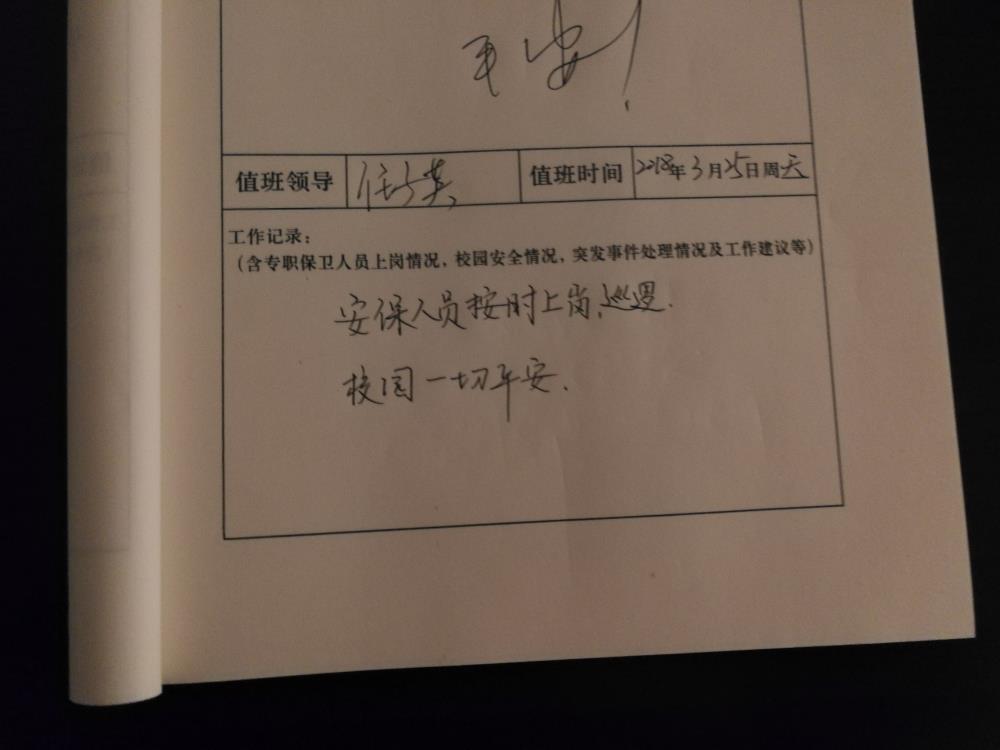 平安！
值班领导 值班时间 2018年3月25日周天
工作记录：
（含专职保卫人员上岗情况，校园安全情况，突发事件处理情况及工作建议等）
安保人员按时上岗、巡逻.
校园一切平安.